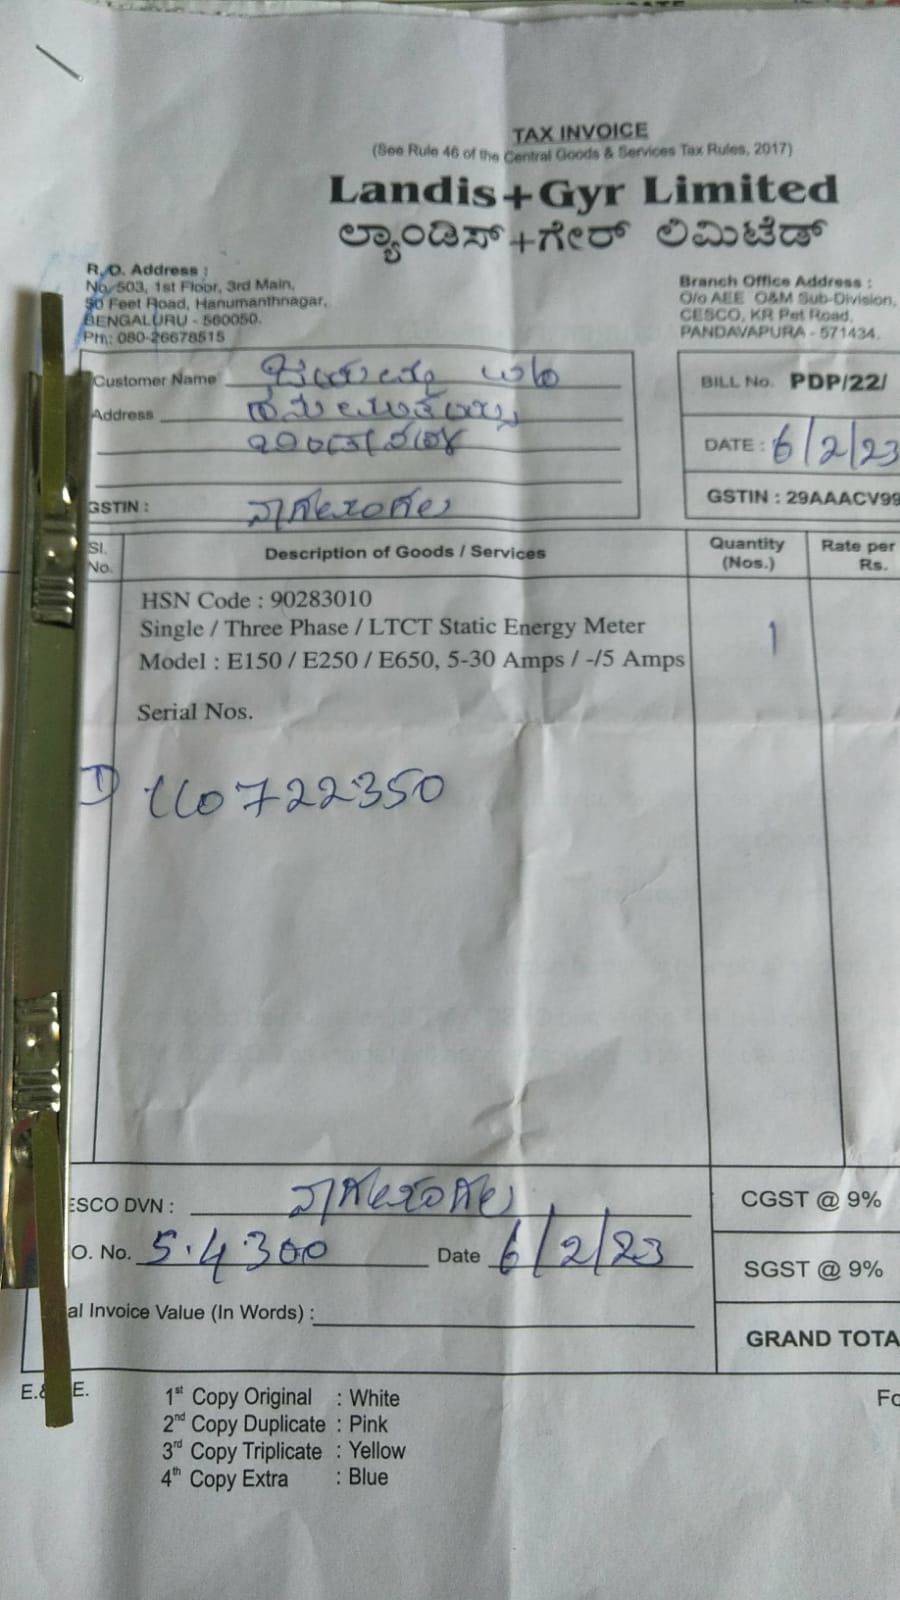 TAX INVOICE
(See Rule 46 of the Central Goods & Services Tax Rules, 2017)
Landis+Gyr Limited
ಲ್ಯಾಂಡಿಸ್+ಗೇರ್ ಲಿಮಿಟೆಡ್
R.O. Address :
No. 503, 1st Floor, 3rd Main,
50 Feet Road, Hanumanthnagar,
BENGALURU - 560050.
Ph: 080-26678515
Branch Office Address :
O/o AEE O&M Sub-Division,
CESCO, KR Pet Road,
PANDAVAPURA - 571434.
Customer Name
Address
GSTIN :
BILL No. PDP/22/
DATE : 6/2/23
GSTIN : 29AAACV99
Sl. No.
Description of Goods / Services
Quantity (Nos.)
Rate per Rs.
HSN Code : 90283010
Single / Three Phase / LTCT Static Energy Meter
Model : E150 / E250 / E650, 5-30 Amps / -/5 Amps
1
Serial Nos.
1) 110722350
ESCO DVN :
O. No. 5.4300 Date 6/2/23
al Invoice Value (In Words) :
CGST @ 9%
SGST @ 9%
GRAND TOTA
E.& E.
1st Copy Original : White
2nd Copy Duplicate : Pink
3rd Copy Triplicate : Yellow
4th Copy Extra : Blue
Fo